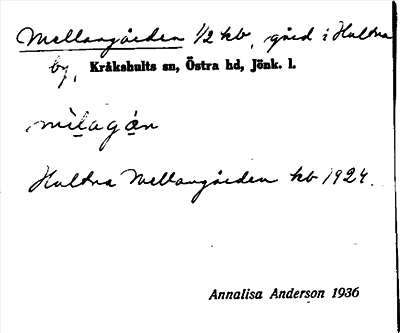 Mellangården 1/2 kb, gård i Hultna
by, Kråkshults sn, Östra hd, Jönk. l.
mìḷagạ́n
Hultna Mellangården kb 1924.
Annalisa Anderson 1936